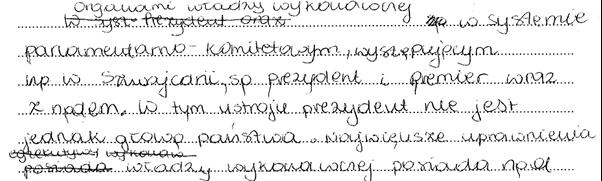 Organami władzy wykonawczej
w syst. Prezydent oraz np w systemie
parlamentarno-komitetowym, występującym
np w Szwajcarii, są prezydent i premier wraz
z rządem. W tym ustroju prezydent nie jest
jednak głową państwa. Największe uprawnienia
egzekutywy wykonaw
posiada władzy wykonawczej posiada rząd